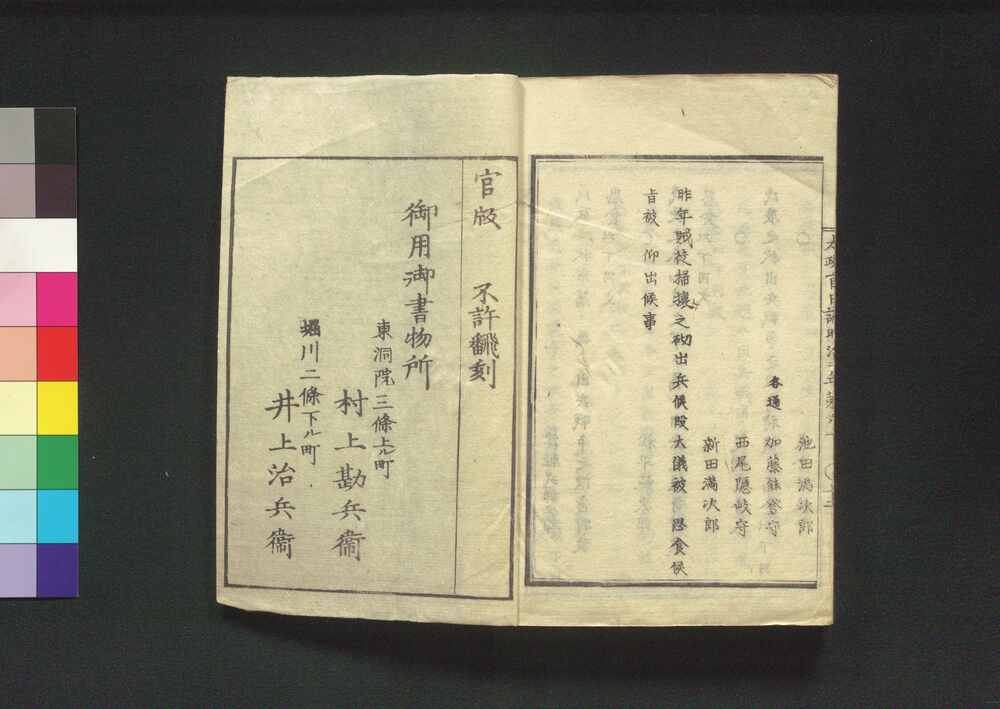 池田満次郎
各通 加藤能登守
西尾隠岐守
新田満次郎
昨年賊徒掃攘之砌出兵候段大儀被 思食候
旨被 仰出候事
官版 不許翻刻
御用御書物所
東洞院三條上ル町
村上勘兵衞
堀川二條下ル町
井上治兵衞